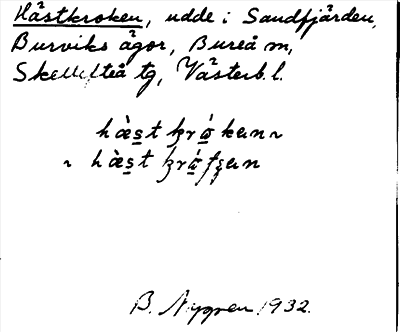 Hästkroken, udde i Sandfjärden,
Burviks ägor, Bureå sn,
Skellefteå tg, Västerb. l.
hàs̲t kró̲ken ~
~ hàs̲t kró̲fʂen
B. Nygren 1932.